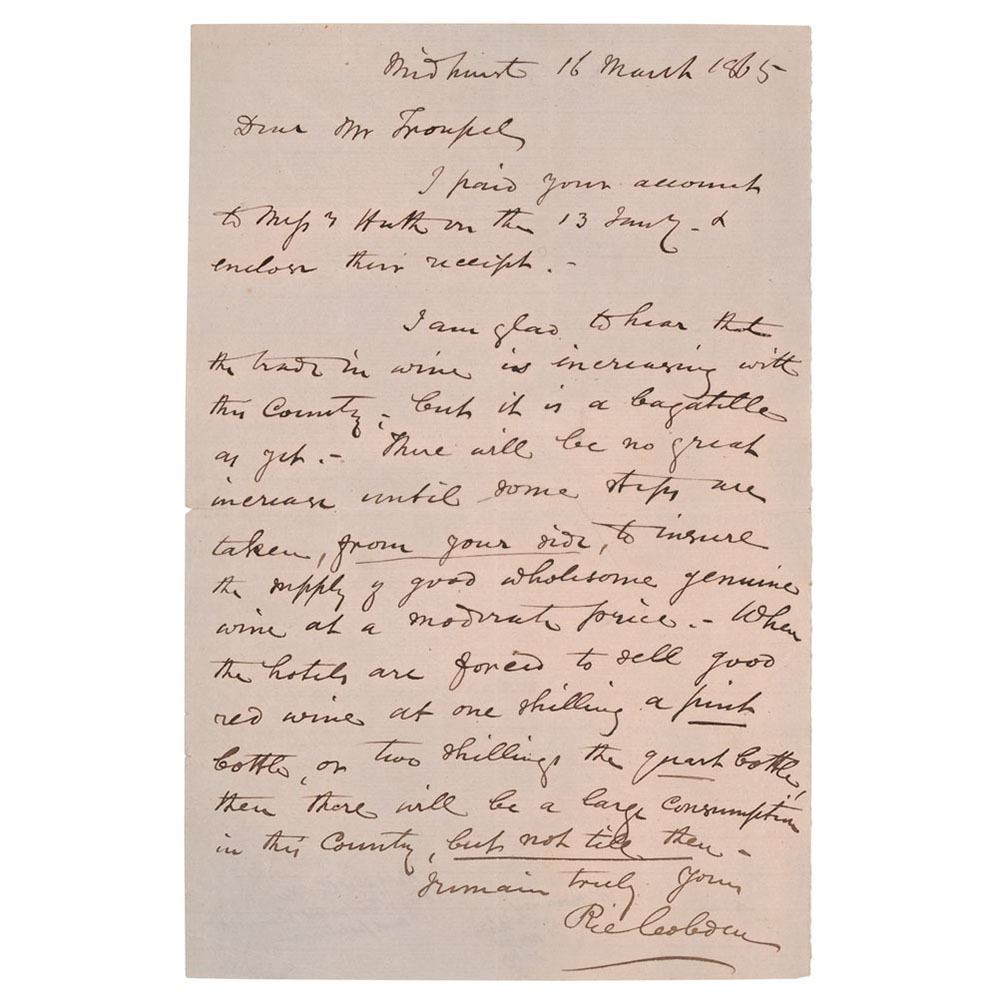 Midhurst 16 March 1865
Dear Mr
I paid your account
to Messrs Huth on the 13 Jany - &
enclose their receipt. -
I am glad to hear that
the trade in wine is increasing with
this Country, - but it is a bagatelle
as yet. - There will be no great
increase until some steps are
taken, from your side, to insure
the supply of good wholesome genuine
wine at a moderate price. - When
the hotels are forced to sell good
red wine at one shilling a pint
bottle, or two shillings the quart bottle,
then there will be a large consumption
in this Country, but not till then -
I remain truly Yours
Ric Cobden